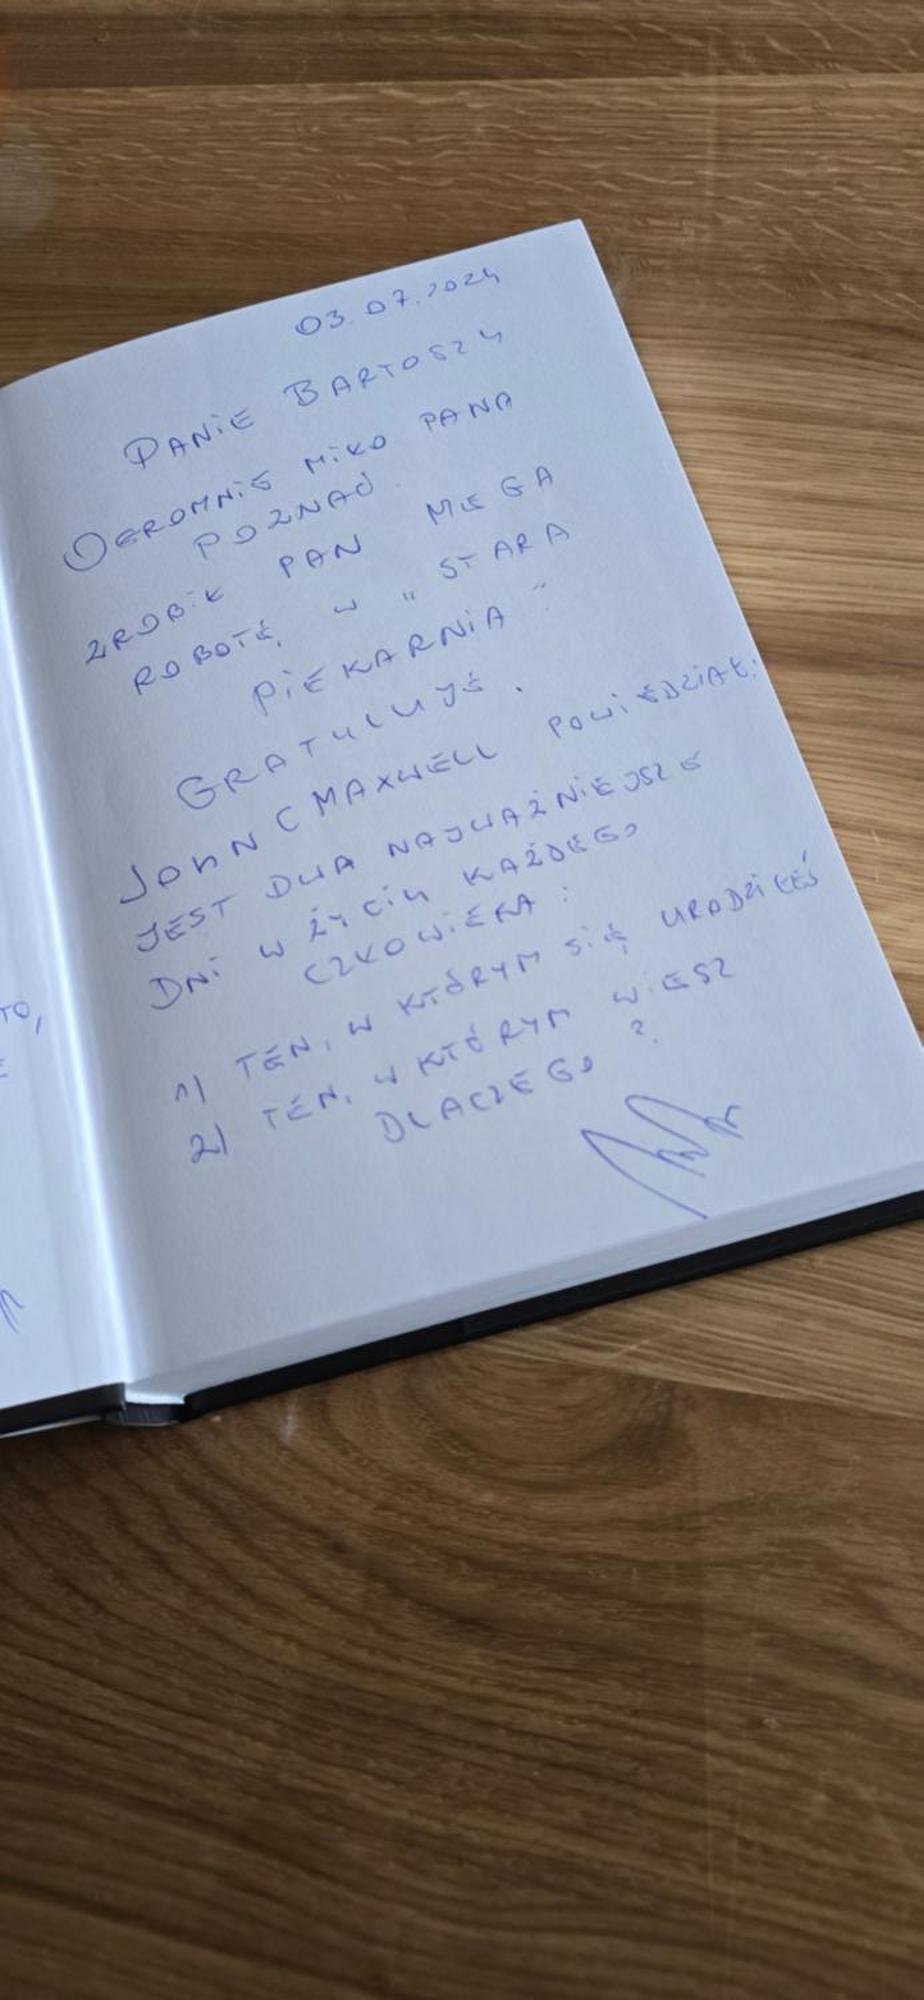 03.07.2024
PANIE BARTOSZU
OGROMNIE MIŁO PANA
POZNAĆ.
ZROBIŁ PAN MEGA
ROBOTĘ W "STARA
PIEKARNIA".
GRATULUJĘ.
JOHN C MAXWELL POWIEDZIAŁ:
JEST DWA NAJWAŻNIEJSZE
DNI W ŻYCIU KAŻDEGO
CZŁOWIEKA:
1) TEN, W KTÓRYM SIĘ URODZIŁEŚ
2) TEN, W KTÓRYM WIESZ
DLACZEGO?